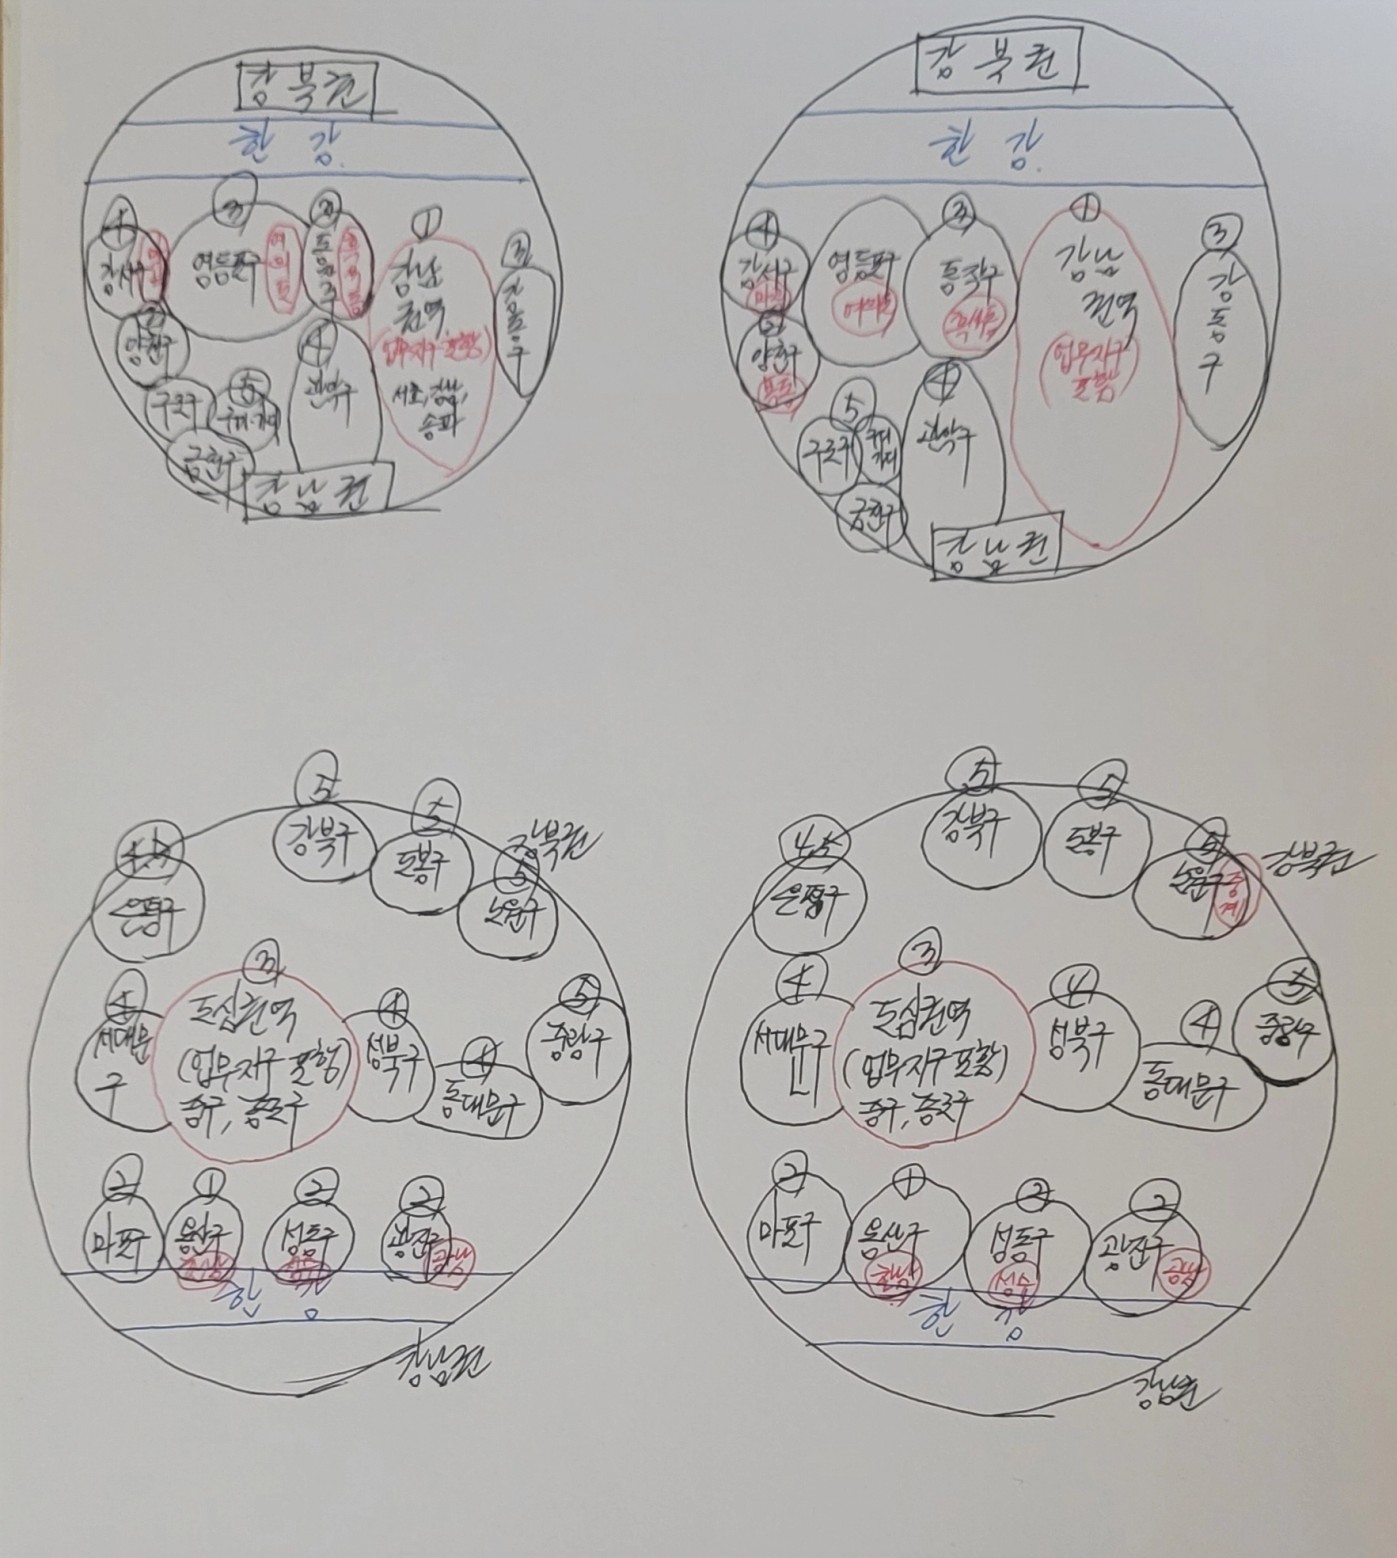 강북권
한강
④
③
②
①
③
강서구
마곡
영등포구
여의도
동작구
흑석동
강남
권역
(업무지구 포함)
서초, 강남,
송파
강동구
양천구
④
관악구
구로구
⑤
구디·가디
금천구
강남권
강북권
한강
④
③
①
③
강서구
마곡
영등포구
여의도
동작구
흑석동
강남
권역
(업무지구
포함)
강동구
양천구
목동
⑤
구로구
구디
가디
④
관악구
금천구
강남권
⑤
강북구
⑤
도봉구
강북권
⑤
노원구
은평구
③
도심권역
(업무지구 포함)
중구, 종로구
④
서대문
구
④
성북구
④
동대문구
⑤
중랑구
②
마포구
①
용산구
②
성동구
②
광진구
광남
한강
강남권
⑤
강북구
⑤
도봉구
⑤
노원구
중계
강북권
4.5
은평구
④
서대문구
③
도심권역
(업무지구 포함)
중구, 종로구
④
성북구
④
동대문구
⑤
중랑구
②
마포구
①
용산구
한남
②
성동구
성수
②
광진구
광남
한강
강남권